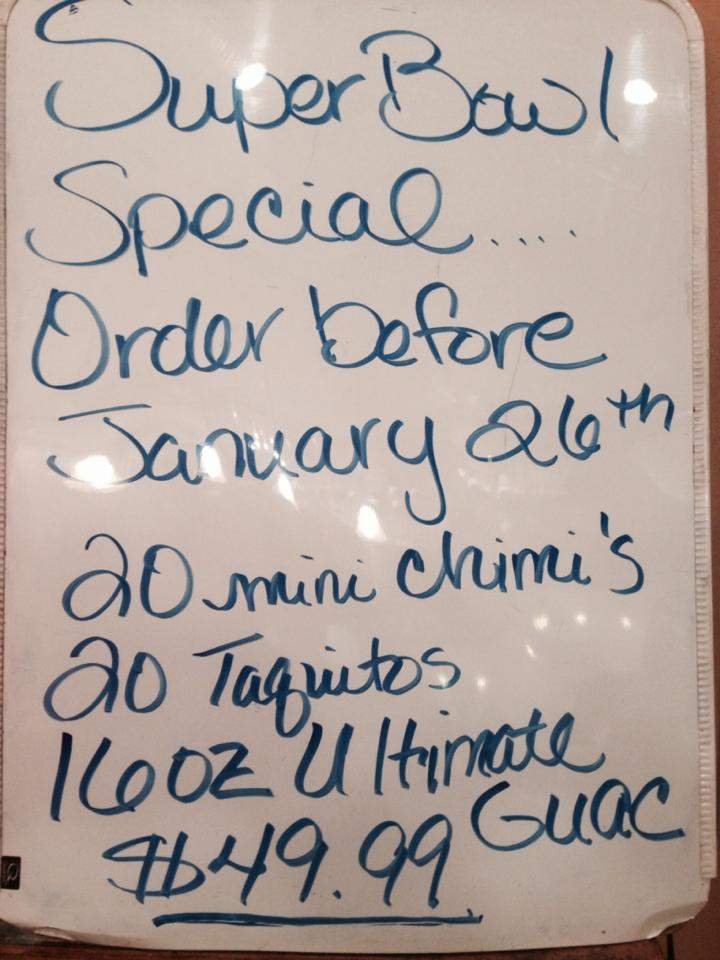 Super Bowl
Special.....
Order before
January 26th
20 mini chimi's
20 Taquitos
16oz Ultimate
Guac
$49.99